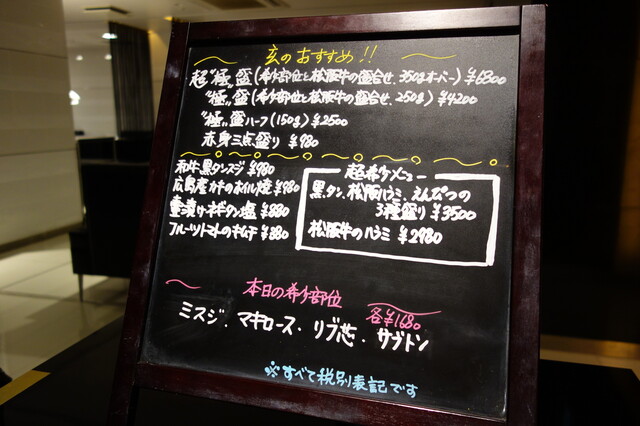 玄のおすすめ!!
超"極"盛(希少部位と松阪牛の盛合せ、350gオーバー)¥6800
"極"盛(希少部位と松阪牛の盛合せ、250g)¥4200
"極"盛ハーフ(150g)¥2500
赤身三点盛り ¥980
和牛黒タンスジ ¥980
広島産カキのホイル焼 ¥980
壷漬けネギタン塩 ¥880
フルーツトマトのキムチ ¥380
超希少メニュー
黒タン、松阪ハラミ、えんぴつの
3種盛り ¥3500
松阪牛のハラミ ¥2980
本日の希少部位
各¥1680
ミスジ、マキロース、リブ芯、サブトン
※すべて税別表記です